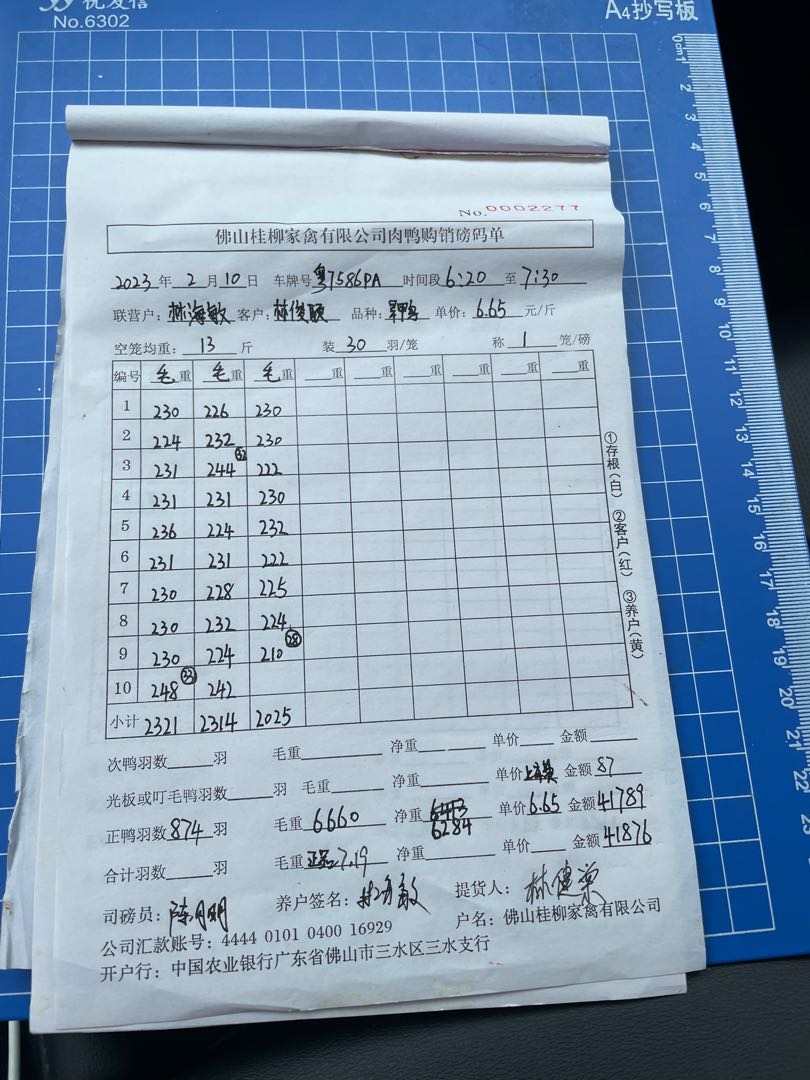 No.6302
A4抄写板
No. 0002277
佛山桂柳家禽有限公司肉鸭购销磅码单
2023年 2月 10日 车牌号 粤7586PA 时间段 6:20 至 7:30
联营户: 林海敏 客户: 林俊 品种: 单价: 6.65 元/斤
空笼均重: 13 斤 装 30 羽/笼 称 1 笼/磅
编号 毛重 毛重 毛重 重 重 重 重 重 重
1 230 226 230
2 224 232 230
3 231 244 ㉜ 222
4 231 231 230
5 236 224 232
6 231 231 222
7 230 228 225
8 230 232 224
9 230 224 210 ㉘
10 248 ㉝ 242
小计 2321 2314 2025
次鸭羽数 羽 毛重 净重 单价 金额
光板或叮毛鸭羽数 羽 毛重 净重 单价 金额 87
正鸭羽数 874 羽 毛重 6660 净重 6284 单价 6.65 金额 41789
合计羽数 羽 毛重 7.19 净重 单价 金额 41876
司磅员: 陈月明 养户签名: 提货人:
公司汇款账号: 4444 0101 0400 16929 户名: 佛山桂柳家禽有限公司
开户行: 中国农业银行广东省佛山市三水区三水支行
①存根(白) ②客户(红) ③养户(黄)
0cm 1 2 3 4 5 6 7 8 9 10 11 12 13 14 15 16 17 18 19 20 21 22 23